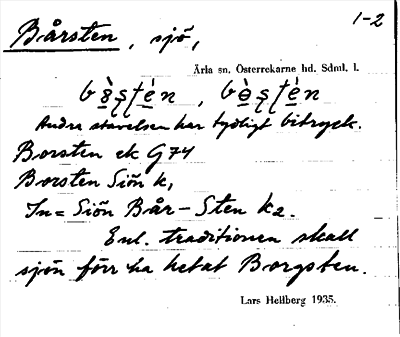 Bårsten, sjö, 1-2
Ärla sn. Österrekarne hd. Sdml. l.
Andra stavelsen har tydligt bitryck.
Borsten ek G74
Borsten Siön k,
In= Siön Bår-Sten k2.
Enl. traditionen skall
sjön förr ha hetat Borgsten.
Lars Hellberg 1935.